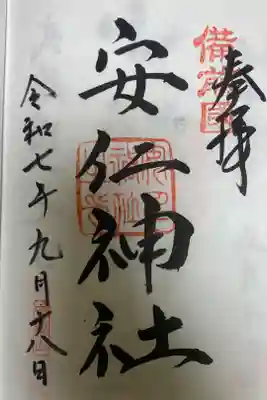 奉拝
備前國
安仁神社
令和七年九月十八日